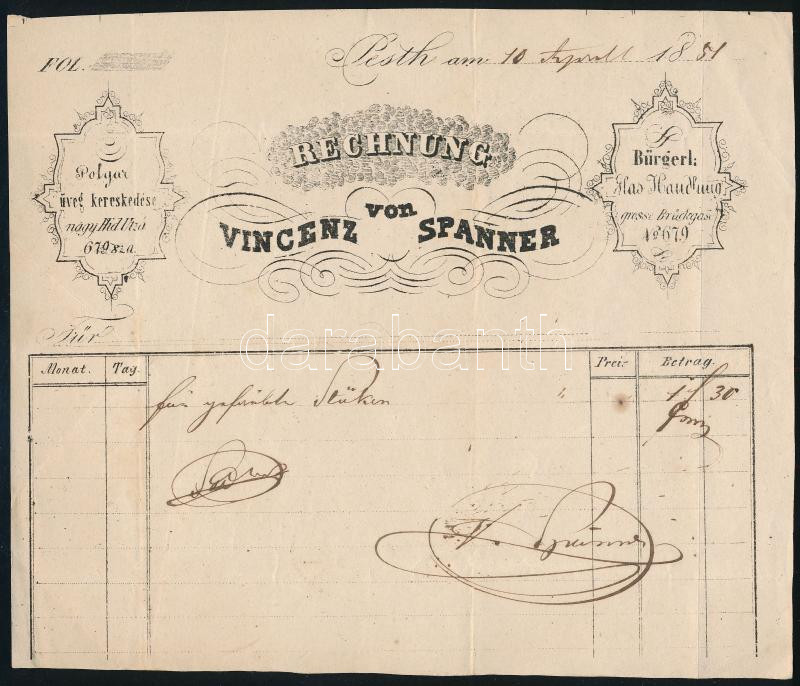 FOL.
Pesth am 10 Aprill 1851
RECHNUNG
von
VINCENZ SPANNER
Polgar
üveg kereskedése
nagy Hid Utzá
679 sza.
Bürgerl:
Glas Handlung
grosse Brückgasse
№ 679
Für
darabanth
Monat. Tag. Preis Betrag.
für gefärbte " 1 f 30
V. Spanner